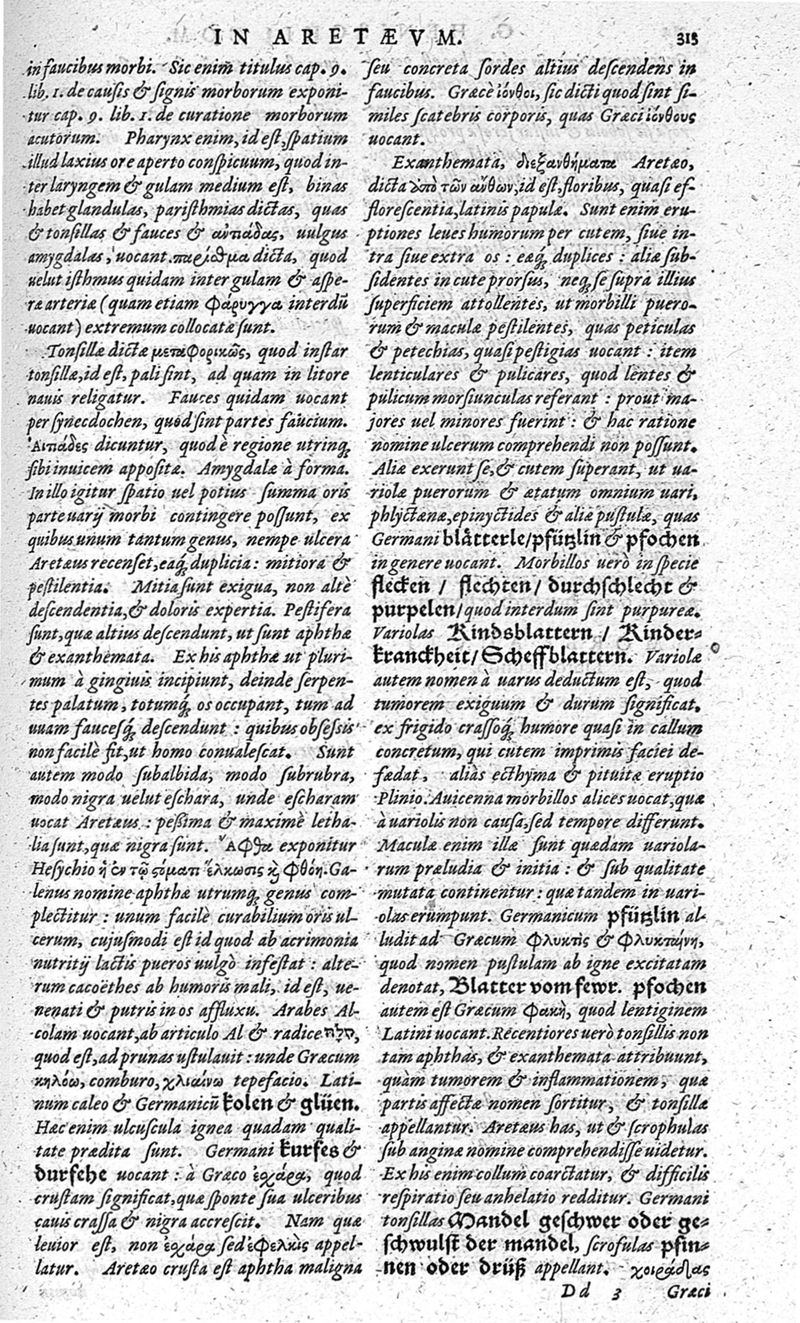 IN ARETÆVM. 313
in faucibus morbi. Sic enim titulus cap. 9.
lib. 1. de causis & signis morborum exponi-
tur cap. 9. lib. 1. de curatione morborum
acutorum. Pharynx enim, id est, spatium
illud laxius ore aperto conspicuum, quod in-
ter laryngem & gulam medium est, binas
habet glandulas, paristhmias dictas, quas
& tonsillas & fauces & ἀντιάδας, uulgus
amygdalas, uocant. παρίσθμια dicta, quod
uelut isthmus quidam inter gulam & aspe-
ræ arteriæ (quam etiam φάρυγγα interdū
uocant) extremum collocatæ sunt.
Tonsillæ dictæ μεταφορικῶς, quod instar
tonsillæ, id est, pali sint, ad quam in litore
nauis religatur. Fauces quidam uocant
per synecdochen, quod sint partes faucium.
Ἀντιάδες dicuntur, quod è regione utrinq;
sibi inuicem appositæ. Amygdalæ à forma.
In illo igitur spatio uel potius summa oris
parte uarij morbi contingere possunt, ex
quibus unum tantum genus, nempe ulcera
Aretæus recenset, eaq; duplicia: mitiora &
pestilentia. Mitia sunt exigua, non altè
descendentia, & doloris expertia. Pestifera
sunt, quæ altius descendunt, ut sunt aphthæ
& exanthemata. Ex his aphthæ ut pluri-
mum à gingiuis incipiunt, deinde serpen-
tes palatum, totumq; os occupant, tum ad
uuam faucesq; descendunt: quibus obsessis
non facilè fit, ut homo conualescat. Sunt
autem modo subalbida, modo subrubra,
modo nigra uelut eschara, unde escharam
uocat Aretæus: peßima & maximè letha-
lia sunt, quæ nigra sunt. Ἄφθα exponitur
Hesychio ἡ ἐν τῷ στόματι ἕλκωσις κ̀ φθόη. Ga-
lenus nomine aphthæ utrumq; genus com-
plectitur: unum facilè curabilium oris ul-
cerum, cujusmodi est id quod ab acrimonia
nutritij lactis pueros uulgò infestat: alte-
rum cacoëthes ab humoris mali, id est, ue-
nenati & putris in os affluxu. Arabes Al-
colam uocant, ab articulo Al & radice קלה,
quod est, ad prunas ustulauit: unde Græcum
κηλόω, comburo, χλιαίνω tepefacio. Lati-
num caleo & Germanicū kolen & glüen.
Hæc enim ulcuscula ignea quadam quali-
tate prædita sunt. Germani kurfes &
durfehe uocant: à Græco ἐσχάρα, quod
crustam significat, quæ sponte sua ulceribus
cauis crassa & nigra accrescit. Nam quæ
leuior est, non ἐσχάρα sed ἐφελκὶς appel-
latur. Aretæo crusta est aphtha maligna
seu concreta sordes altius descendens in
faucibus. Græcè ἰόνθοι, sic dicti quod sint si-
miles scatebris corporis, quas Græci ἰόνθους
uocant.
Exanthemata, διεξανθήματα Aretæo,
dicta ἀπὸ τῶν ἄνθων, id est, floribus, quasi ef-
florescentia, latinis papulæ. Sunt enim eru-
ptiones leues humorum per cutem, siue in-
tra siue extra os: eaq; duplices: aliæ sub-
sidentes in cute prorsus, neq; se supra illius
superficiem attollentes, ut morbilli puero-
rum & maculæ pestilentes, quas peticulas
& petechias, quasi pestigias uocant: item
lenticulares & pulicares, quod lentes &
pulicum morsiunculas referant: prout ma-
jores uel minores fuerint: & hac ratione
nomine ulcerum comprehendi non possunt.
Aliæ exerunt se, & cutem superant, ut ua-
riolæ puerorum & ætatum omnium uari,
phlyctænæ, epinyctides & aliæ pustulæ, quas
Germani blåtterle/pfützlin & pfochen
in genere uocant. Morbillos uerò in specie
flecken / flechten / durchschlecht &
purpelen/ quod interdum sint purpureæ.
Variolas Kindsblattern / Kinder-
kranckheit/ Scheffblattern. Variolæ
autem nomen à uarus deductum est, quod
tumorem exiguum & durum significat.
ex frigido crassoq; humore quasi in callum
concretum, qui cutem imprimis faciei de-
fædat, aliàs ecthyma & pituitæ eruptio
Plinio. Auicenna morbillos alices uocat, quæ
à uariolis non causa, sed tempore differunt.
Maculæ enim illæ sunt quædam uariola-
rum præludia & initia: & sub qualitate
mutata continentur: quæ tandem in uari-
olas erumpunt. Germanicum pfützlin al-
ludit ad Græcum φλυκτὶς & φλυκταίνη,
quod nomen pustulam ab igne excitatam
denotat, Blatter vom fewr. pfochen
autem est Græcum φακῆ, quod lentiginem
Latini uocant. Recentiores uerò tonsillis non
tam aphthas, & exanthemata attribuunt,
quàm tumorem & inflammationem, quæ
partis affectæ nomen sortitur, & tonsillæ
appellantur. Aretæus has, ut & scrophulas
sub anginæ nomine comprehendisse uidetur.
Ex his enim collum coarctatur, & difficilis
respiratio seu anhelatio redditur. Germani
tonsillas Mandel geschwer oder ge-
schwulst der mandel, scrofulas pfin-
nen oder drüß appellant. χοιράδας
Dd 3 Græci